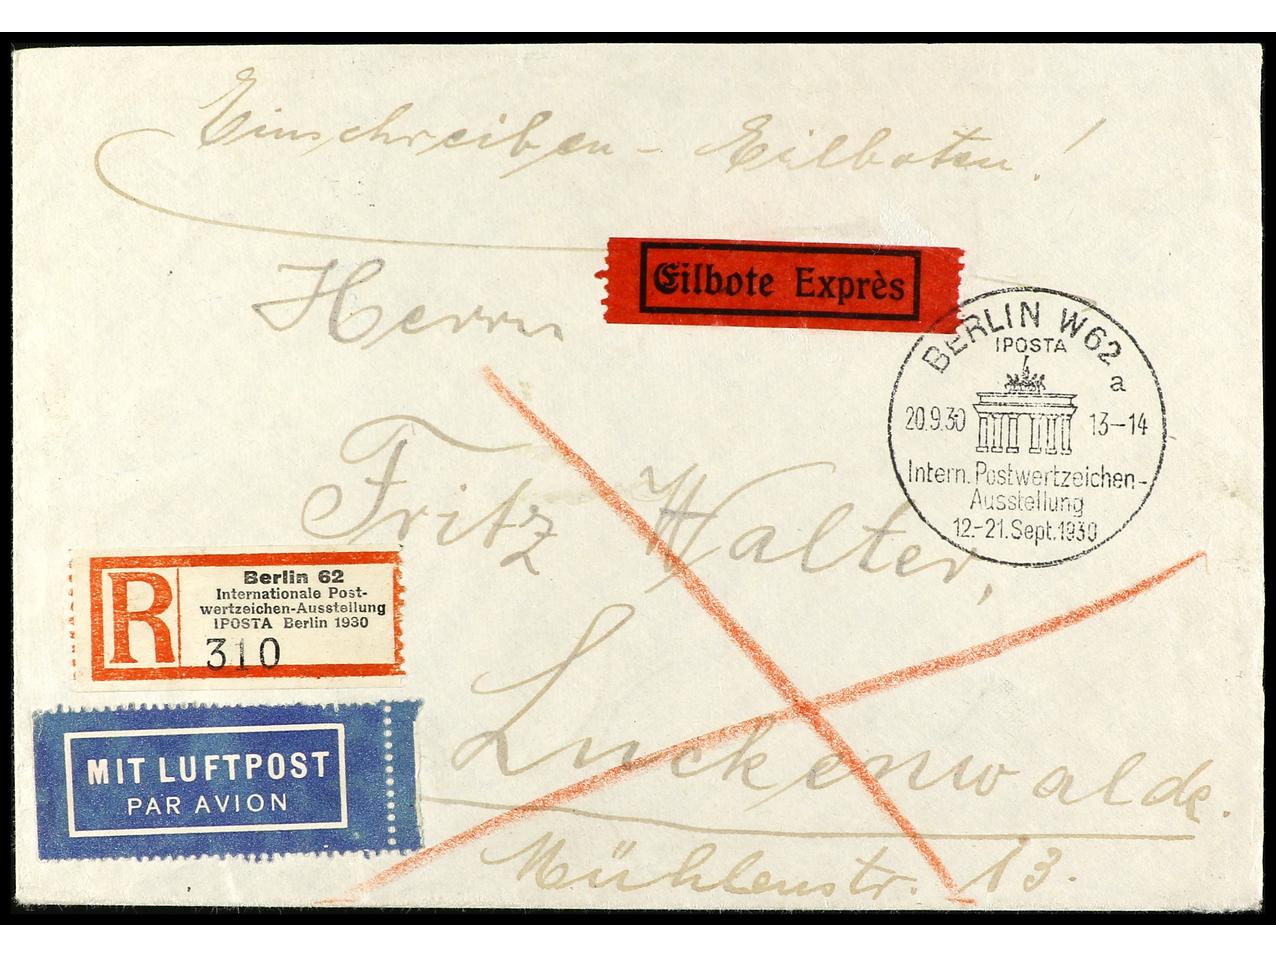 Einschreiben - Eilboten!
Eilbote Exprès
Herrn
Fritz Walter,
Luckenwalde.
Mühlenstr. 13.
BERLIN W62
IPOSTA
a
20.9.30 13-14
Intern. Postwertzeichen-
Ausstellung
12.-21. Sept. 1930
R
Berlin 62
Internationale Post-
wertzeichen-Ausstellung
IPOSTA Berlin 1930
310
MIT LUFTPOST
PAR AVION